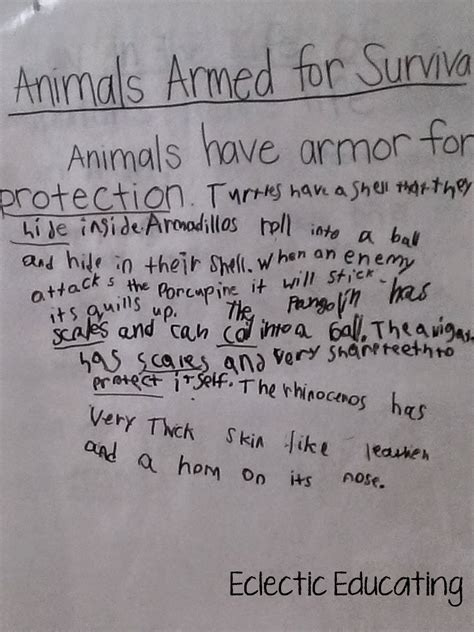 Animals Armed for Surviva
Animals have armor for
protection. Turtles have a shell that they
hide inside. Armadillos roll into a ball
and hide in their shell. When an enemy
attacks the porcupine it will stick
its quills up. The Pangolin has
scales and can coil into a ball. The
has scales and very sharp teeth to
protect itself. The rhinoceros has
Very Thick skin like leather
and a horn on its nose.
Eclectic Educating